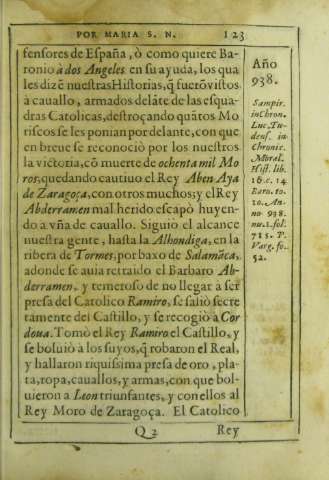 POR MARIA S. N. 123
fensores de España, ò como quiere Ba-
ronio à dos Angeles en su ayuda, los qua
les dizẽ nuestras Historias, q̃ fuerõ vistos
à cauallo, armados delãte de las esqua-
dras Catolicas, destroçando quãtos Mo
riscos se les ponian por delante, con que
en breue se reconociò por los nuestros
la victoria, cõ muerte de ochenta mil Mo
ros, quedando cautiuo el Rey Aben Aya
de Zaragoça, con otros muchos; y el Rey
Abderramen mal herido escapò huyen-
do a vña de cauallo. Siguiò el alcance
nuestra gente, hasta la Alhondiga, en la
ribera de Tormes, por baxo de Salamãca,
adonde se auia retraido el Barbaro Ab-
derramen, y temeroso de no llegar a ser
presa del Catolico Ramiro, se saliò secre
tamente del Castillo, y se recogiò a Cor
doua. Tomò el Rey Ramiro el Castillo, y
se boluiò a los suyos, q̃ robaron el Real,
y hallaron riquissima presa de oro, pla-
ta, ropa, cauallos, y armas, con que bol-
uieron a Leon triunfantes, y con ellos al
Rey Moro de Zaragoça. El Catolico
Q 2 Rey
Año
938.
Sampir.
in Chron.
Luc. Tu-
dens. in
Chronic.
Moral.
Hist. lib.
16. c. 14
Baro. to.
10. An-
no 938.
nu. 2. fol.
785. P.
Varg. fo.
52.